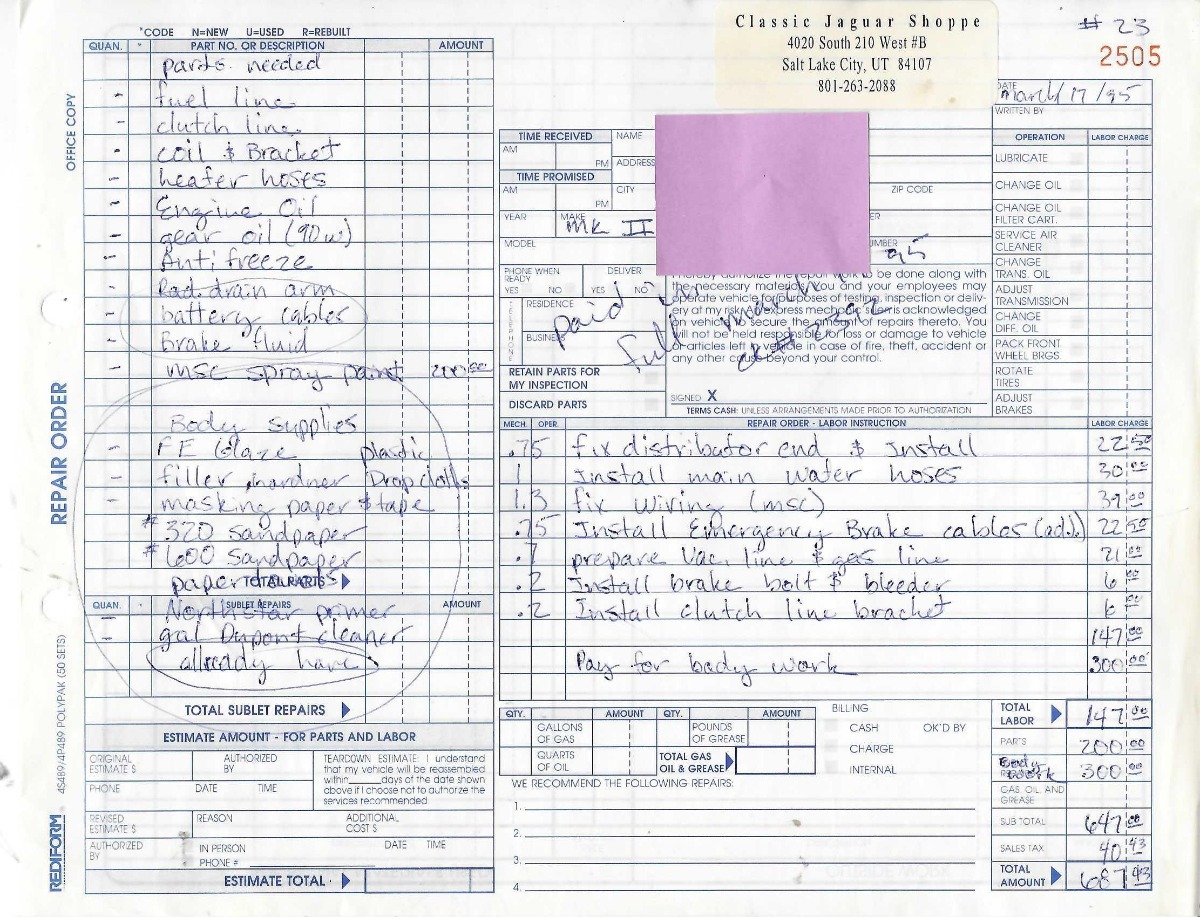 Classic Jaguar Shoppe
4020 South 210 West #B
Salt Lake City, UT 84107
801-263-2088
# 23
2505
*CODE N=NEW U=USED R=REBUILT
QUAN. * PART NO. OR DESCRIPTION AMOUNT
parts needed
- fuel line
- clutch line
- coil & Bracket
- heater hoses
- Engine Oil
- gear oil (90w)
- Anti freeze
- Rad. drain arm
- battery cables
- Brake fluid
- msc spray paint 200 00
Body supplies
- FE Glaze plastic
- filler, hardner Drop cloths
- masking paper & tape
# 320 sandpaper
# 600 sandpaper
paper
TOTAL PARTS
QUAN. * SUBLET REPAIRS AMOUNT
- Northstar primer
- gal Dupont cleaner
allready have
TOTAL SUBLET REPAIRS
ESTIMATE AMOUNT - FOR PARTS AND LABOR
ORIGINAL ESTIMATE $
AUTHORIZED BY
TEARDOWN ESTIMATE: I understand
that my vehicle will be reassembled
within____days of the date shown
above if I choose not to authorize the
services recommended.
PHONE DATE TIME
REVISED ESTIMATE $
REASON
ADDITIONAL COST $
AUTHORIZED BY
IN PERSON
PHONE #
DATE TIME
ESTIMATE TOTAL
OFFICE COPY
REPAIR ORDER
REDIFORM
4S489/4P489 POLYPAK (50 SETS)
DATE
March/17/95
WRITTEN BY
TIME RECEIVED
AM
PM
TIME PROMISED
AM
PM
NAME
ADDRESS
CITY
ZIP CODE
YEAR
MAKE
MK II
MODEL
PHONE WHEN READY
YES NO
DELIVER
YES NO
TELEPHONE
RESIDENCE
BUSINESS
RETAIN PARTS FOR
MY INSPECTION
DISCARD PARTS
I hereby authorize the repair work to be done along with
the necessary materials. You and your employees may
operate vehicle for purposes of testing, inspection or deliv-
ery at my risk. An express mechanic's lien is acknowledged
on vehicle to secure the amount of repairs thereto. You
will not be held responsible for loss or damage to vehicle
or articles left in vehicle in case of fire, theft, accident or
any other cause beyond your control.
paid in
full march
95
SIGNED X
TERMS CASH: UNLESS ARRANGEMENTS MADE PRIOR TO AUTHORIZATION
OPERATION LABOR CHARGE
LUBRICATE
CHANGE OIL
CHANGE OIL
FILTER CART.
SERVICE AIR
CLEANER
CHANGE
TRANS. OIL
ADJUST
TRANSMISSION
CHANGE
DIFF. OIL
PACK FRONT
WHEEL BRGS.
ROTATE
TIRES
ADJUST
BRAKES
MECH. OPER. REPAIR ORDER - LABOR INSTRUCTION LABOR CHARGE
.75 fix distributor end & Install 22 50
1 Install main Water hoses 30 00
1.3 fix Wiring (msc) 39 00
.75 Install Emergency Brake cables (adj.) 22 50
.7 prepare Vac. line & gas line 21 00
.2 Install brake bolt & bleeder 6 00
.2 Install clutch line bracket 6 00
147 00
Pay for body work 300 00
QTY. AMOUNT QTY. AMOUNT
GALLONS OF GAS
POUNDS OF GREASE
QUARTS OF OIL
TOTAL GAS OIL & GREASE
BILLING
CASH OK'D BY
CHARGE
INTERNAL
WE RECOMMEND THE FOLLOWING REPAIRS:
1.
2.
3.
4.
TOTAL LABOR 147 00
PARTS 200 00
Body work 300 00
GAS, OIL AND GREASE
SUB TOTAL 647 00
SALES TAX 40 43
TOTAL AMOUNT 687 43